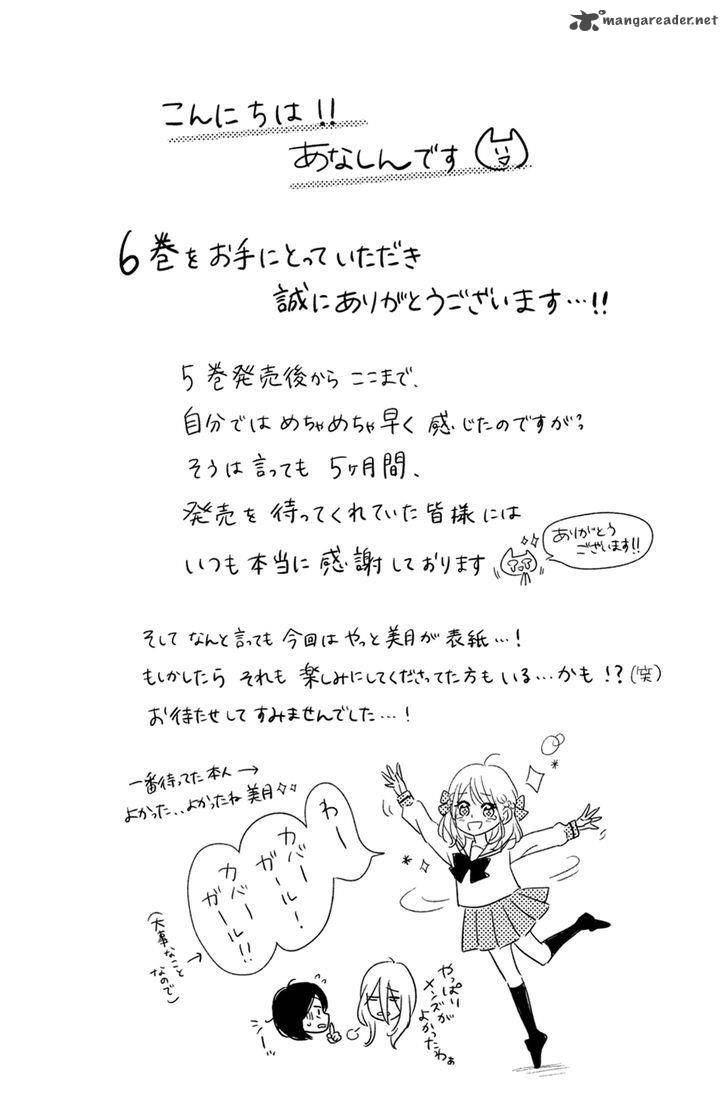 mangareader.net
こんにちは!!
あなしんです
6巻をお手にとっていただき
誠にありがとうございます…!!
5巻発売後から ここまで、
自分では めちゃめちゃ早く 感じたのですが?
そうは言っても 5ヶ月間、
発売を 待ってくれていた 皆様には
いつも本当に 感謝しております
ありがとう
ございます!!
そして なんと言っても 今回は やっと 美月が 表紙…!
もしかしたら それも 楽しみにしてくださってた方も いる…かも!?(笑)
お待たせして すみませんでした…!
一番待ってた本人→
よかった..よかったね美月
わー
カバー
ガール!
カバー
ガール!!
(大事なこと
なので)
シーッ
やっぱり
メンズが
よかったわぁ